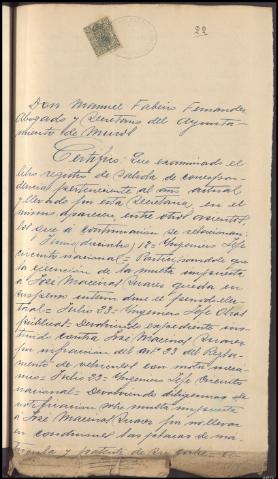 22
Don Manuel Fabeiro Fernandez
Abogado y Secretario del Ayunta-
miento de Muros
Certifico: Que examinado el
libro registro de salida de correspon-
dencia perteneciente al año actual
y llevado por esta Secretaria, en el
mismo aparecen, entre otros asientos,
los que a continuacion se relacionan:
Junio 18 = Ingeniero Jefe
circuito nacional = Participandole que
la ejecucion de la multa impuesta
a Jose Maceiras Suarez queda en
suspenso interin dure el periodo elec-
toral = Julio 23 = Ingeniero Jefe Obras
publicas = Devolviendo expediente ins-
truido contra Jose Maceiras Suarez
por infraccion del artº 23 del Regla-
mento de vehiculos con motor meca-
nico = Julio 23 = Ingeniero Jefe Circuito
nacional = Devolviendo diligencias de
notificacion sobre multa impuesta
a Jose Maceiras Suarez por no llevar
en condiciones las placas de ma-
tricula y patente de